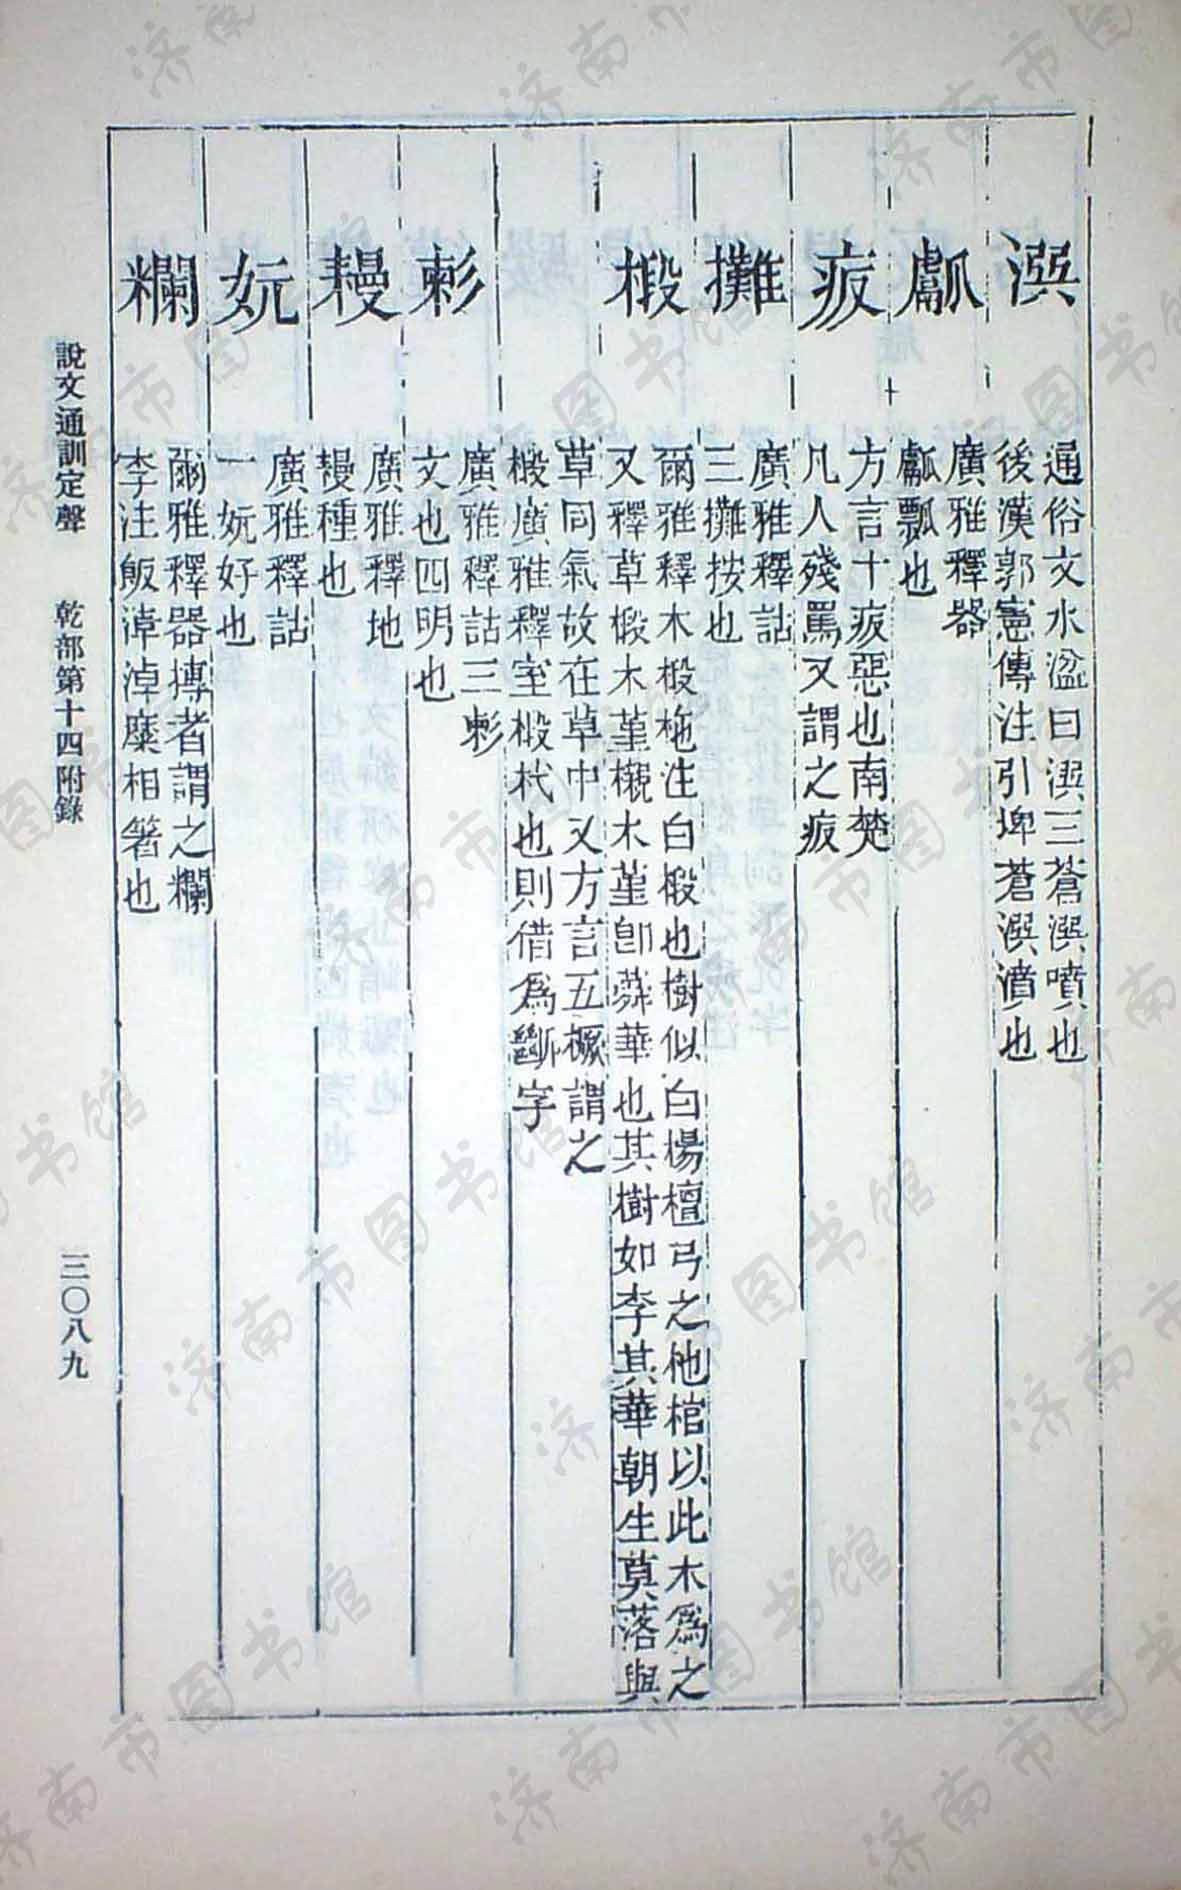 潠
通俗文水湓曰潠三蒼潠噴也
後漢郭憲傳注引埤蒼潠濆也
甗
廣雅釋器
甗瓢也
㽹
方言十㽹惡也南楚
凡人殘罵又謂之㽹
攤
廣雅釋詁
三攤按也
椴
爾雅釋木椴柂注白椴也樹似白楊檀弓之杝棺以此木爲之
又釋草椴木堇櫬木堇卽蕣華也其樹如李其華朝生莫落與
草同氣故在草中又方言五橛謂之
椴廣雅釋室椴杙也則借爲斷字
彪
廣雅釋詁三
文也四明也
耬
廣雅釋地
種也
妧
廣雅釋詁
一妧好也
糷
爾雅釋器摶者謂之糷
李注飯淖淖糜相箸也
說文通訓定聲 乾部第十四附錄
三〇八九
济南市图书馆